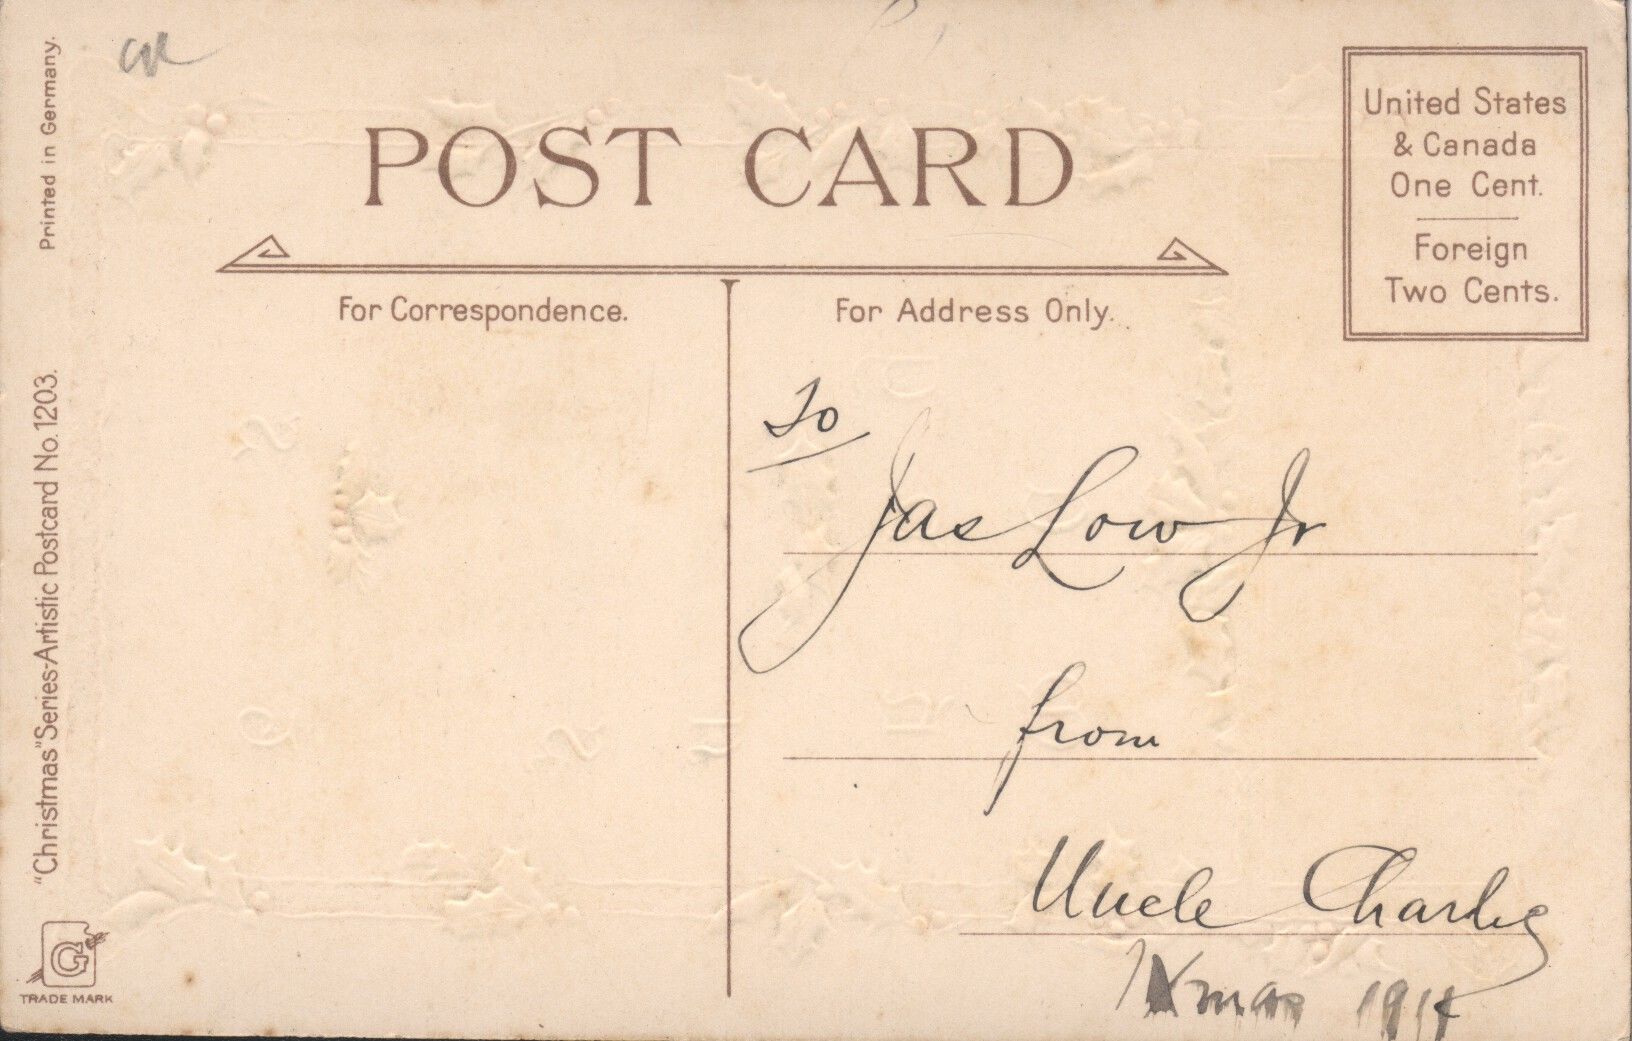 Printed in Germany.
POST CARD
United States
& Canada
One Cent.
Foreign
Two Cents.
For Correspondence.
For Address Only.
"Christmas" Series-Artistic Postcard No. 1203.
To
Jas Low Jr
from
Uncle Charley
Xmas
G
TRADE MARK